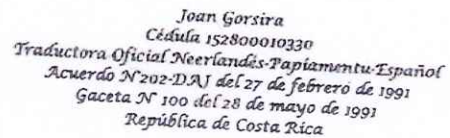 Joan Gorsira
Cédula 152800010330
Traductora Oficial Neerlandés-Papiamentu-Español
Acuerdo Nº202-DAJ del 27 de febrero de 1991
Gaceta Nº 100 del 28 de mayo de 1991
República de Costa Rica